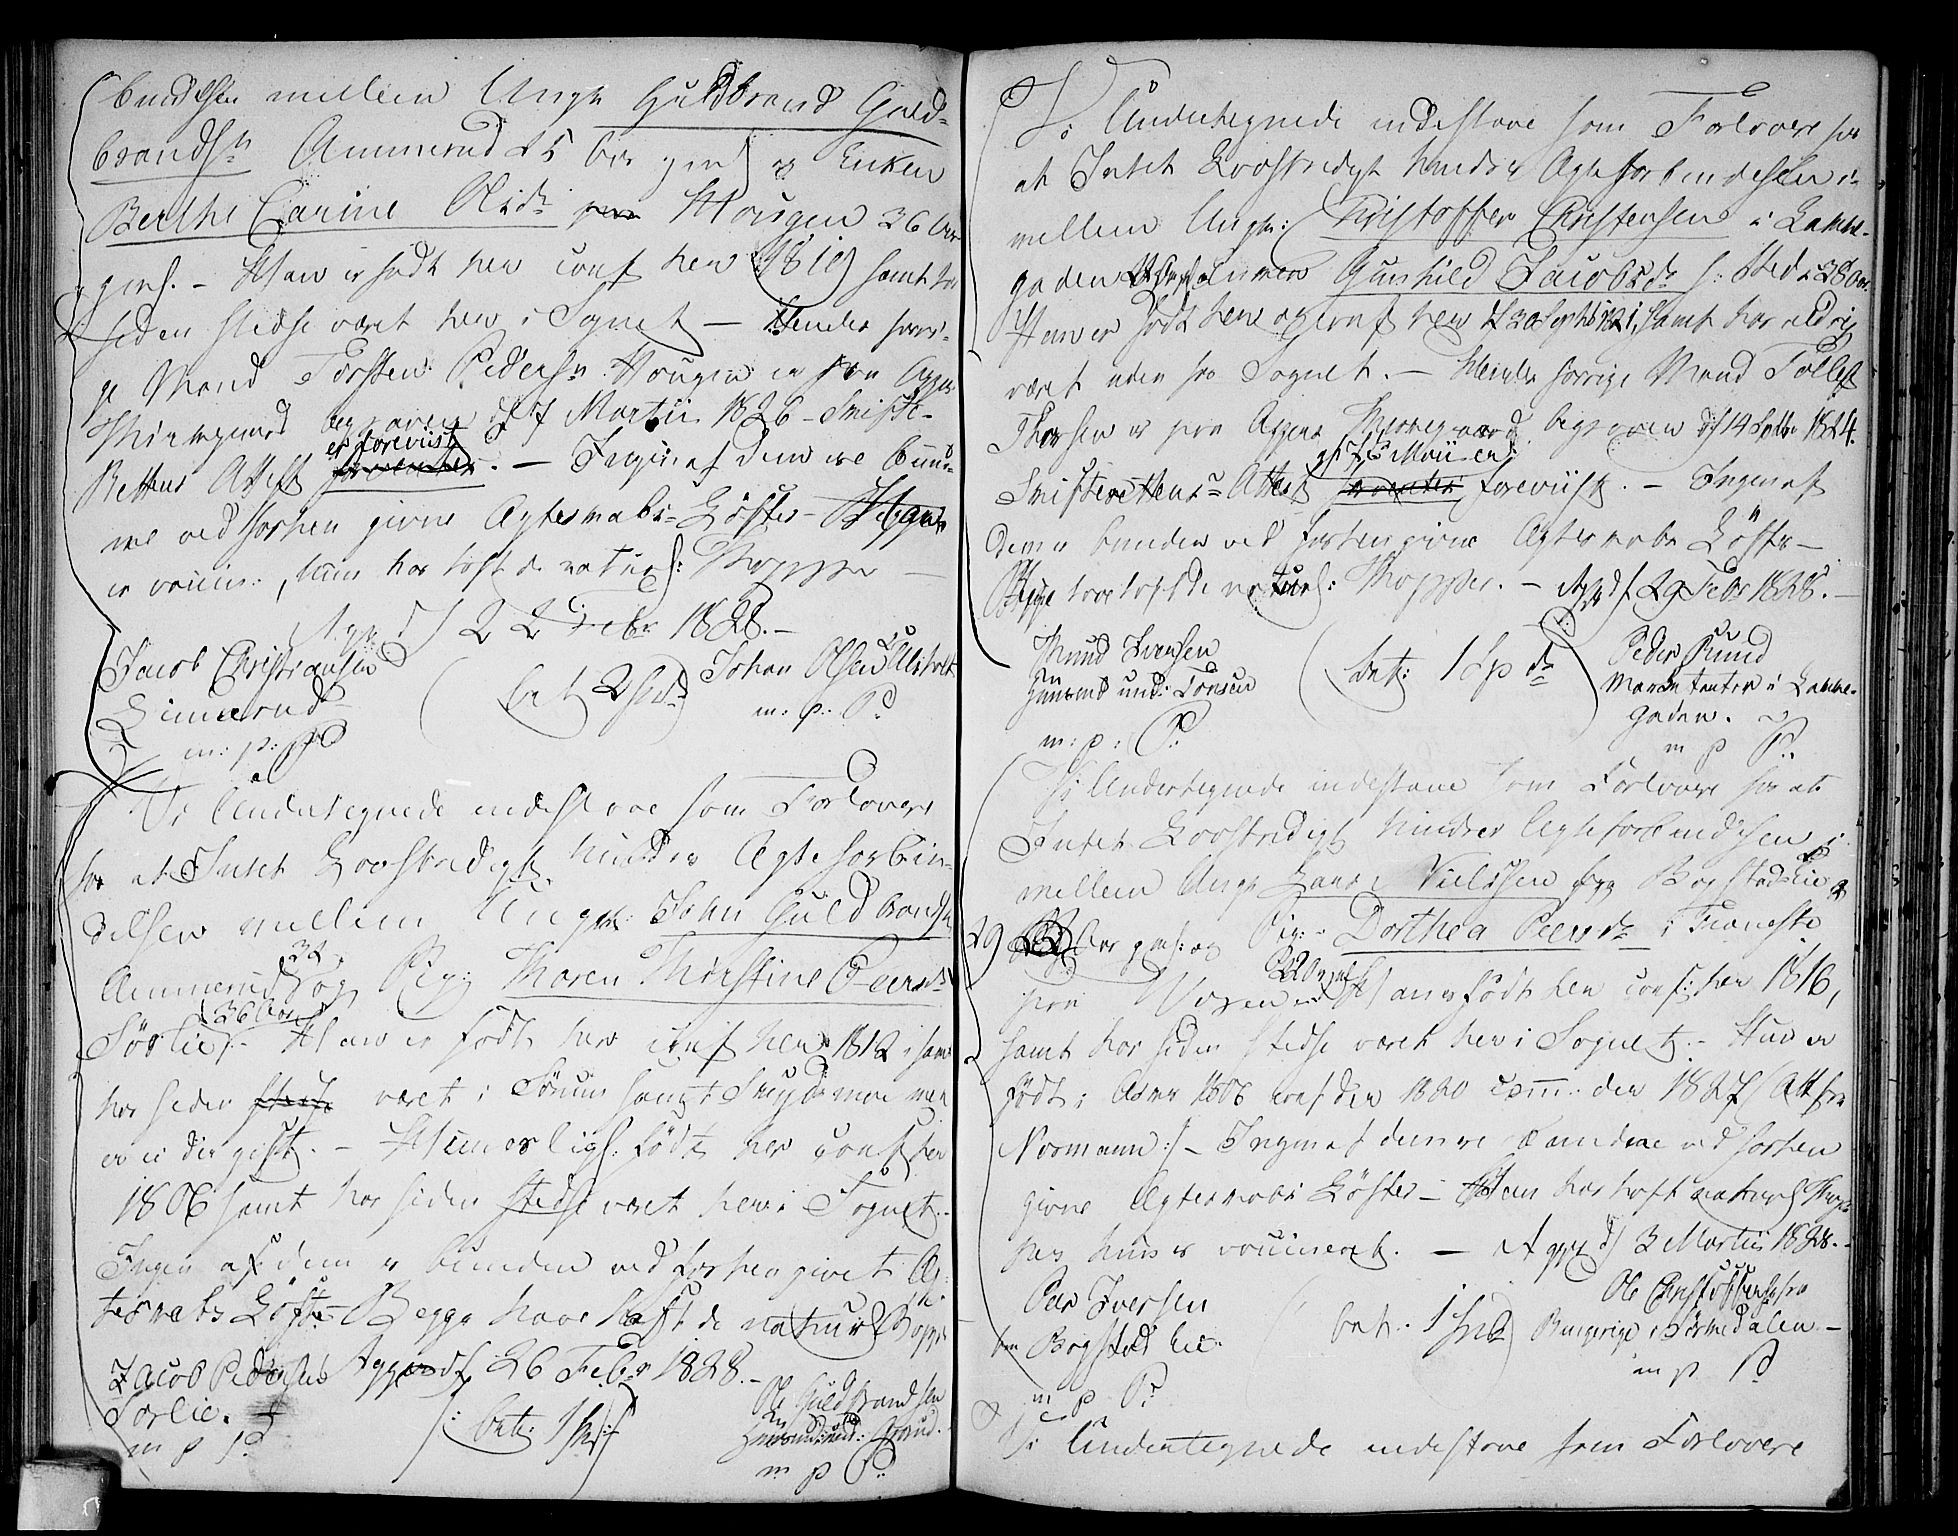 bindelsen mellem Ungk Guldbrand Guld-
brands: Ammerud 25 Aar gml og Enken
Berthe Carine Olsd: Hougen 36 Aar
gml. - Han er født her conf her 1819 samt har
siden stedse været her i Sognet - Hendes forri-
ge Mand Torsten Peders: Hougen er fra Agger
Kirkegaard begraven d 7 Martii 1826 - Skifte-
er foreviist
Rettens Attest . - Ingen af dem ere bund-
ne ved forhen givne Ægteskabs-Løfter - Begge
er vaccin: , hun har haft de naturl: Kopper -
Agger d 22 Febr 1828. -
Jacob Christiansen
Linnerud
m: p: P
(bet 2 Spd)
Johan Olsen Ulsholt
m: p: P:
Vi Undertegnede indestaae som Forlovere
for at Intet Lovstridigt hindrer Ægteforbin-
delsen mellem Ungk: John Guldbrands
32
Ammerud og Pig: Karen Kirstine Peersd:
36 Aar
Sørlie. - Han er født her conf her 1812 samt
har siden været i Sørum samt Skydsmoe men
er ei der gift. - Hun er lig: født her conf her
1806 samt har siden stedse været her i Sognet. -
Ingen af dem er bunden ved forhen givet Æg-
teskabs Løfte - Begge have haft de naturl Kopper
Agger d 26 Febr 1828. -
Jacob Peders:
Sørlie.
m p P
(bet: 1 Spd)
Ole Guldbrandsen
m p P
Vi Undertegnede indestaae som Forlovere for
at Intet Lovstridigt hindrer Ægteforbindelsen i-
mellem Ungk: Kristoffer Christensen i Lakke-
gaden og Enken Gunhild Jacobsd: s: Sted 28 Aar.
Han er født her og conf her d 30 Septb: 1821, samt har aldrig
været uden fra Sognet. - Hendes forrige Mand Tollef
Thorsen er fra Aggers Kirkegaard begraven d 14 Septbr 1824.
Skifterettens Attest foreviist. - Ingen af
dem er bunden ved forhen givne Ægteskabs Løfte -
Begge have haft de naturl: Kopper. - Agger d 29 Febr 1828. -
Knud Iversen
m: p: P:
(bet: 1 Spd)
Peder Ruud
i Lakke-
gaden.
m p P:
Vi Undertegnede indestaae som Forlovere for at
Intet Lovstridigt hindrer Ægteforbindelsen i-
mellem Ungk Lars Nielssen fra Bogstad Lie
29 Aar gml: og Pig: Dorthea Peersd: i
fra 22 Aar gml. Han er født her conf: her 1816,
samt har siden stedse været her i Sognet. - Hun er
født i Asker 1806 conf der 1820 comm: der 1827 (Att fra
Normann:) - Ingen af dem ere bundne ved forhen
givne Ægteskabs Løfter - Han har haft naturl Kop-
per hun er vaccineret. - Agger d 3 Martii 1828. -
Peer Iversen
Bogstad Lie.
m p P:
(bet: 1 Spd)
Ole Christophersen fra
i Sørkedalen -
m p P
Vi Undertegnede indestaae som Forlovere